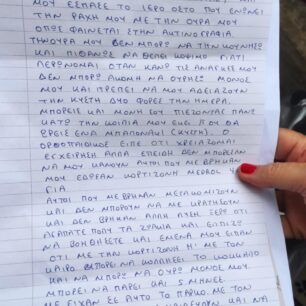 ΜΟΥ ΕΣΠΑΣΕ ΤΟ ΙΕΡΟ ΟΣΤΟ ΠΟΥ ΕΝΩΝΕΙ
ΤΗΝ ΡΑΧΗ ΜΟΥ ΜΕ ΤΗΝ ΟΥΡΑ ΜΟΥ
ΟΠΩΣ ΦΑΙΝΕΤΑΙ ΣΤΗΝ ΑΚΤΙΝΟΓΡΑΦΙΑ.
ΤΗΝ ΟΥΡΑ ΜΟΥ ΔΕΝ ΜΠΟΡΩ ΝΑ ΤΗΝ ΚΟΥΝΗΣΩ
ΚΑΙ ΠΙΘΑΝΩΣ ΝΑ ΘΕΛΕΙ ΚΟΨΙΜΟ ΓΙΑΤΙ
ΛΕΡΩΝΟΜΑΙ ΟΤΑΝ ΚΑΝΩ ΤΙΣ ΑΝΑΓΚΕΣ ΜΟΥ
ΔΕΝ ΜΠΟΡΩ ΑΚΟΜΗ ΝΑ ΟΥΡΗΣΩ ΜΟΝΟΣ
ΜΟΥ ΚΑΙ ΠΡΕΠΕΙ ΝΑ ΜΟΥ ΑΔΕΙΑΖΟΥΝ
ΤΗΝ ΚΥΣΤΗ ΔΥΟ ΦΟΡΕΣ ΤΗΝ ΗΜΕΡΑ.
ΜΠΟΡΕΙΣ ΚΑΙ ΜΟΝΗ ΣΟΥ ΠΙΕΖΟΝΤΑΣ ΠΑΝΩ
ΚΑΤΩ ΤΗΝ ΚΟΙΛΙΑ ΜΟΥ ΕΚΕΙ ΠΟΥ ΘΑ
ΒΡΕΙΣ ΕΝΑ ΜΠΑΛΟΝΑΚΙ (ΚΥΣΤΗ). Ο
ΟΡΘΟΠΑΙΔΟΣ ΕΙΠΕ ΟΤΙ ΧΡΕΙΑΖΟΜΑΙ
ΕΓΧΕΙΡΗΣΗ ΑΛΛΑ ΕΠΕΙΔΗ ΔΕΝ ΜΠΟΡΕΣΑΝ
ΝΑ ΜΟΥ ΚΑΝΟΥΝ ΑΥΤΟΙ ΠΟΥ ΜΕ ΒΡΗΚΑΝ
ΜΟΥ ΕΔΩΣΕ ΚΟΡΤΙΖΟΝΗ MEDROL
ΓΙΑ
ΑΥΤΟΙ ΠΟΥ ΜΕ ΒΡΗΚΑΝ ΜΕΤΑΚΟΜΙΖΟΥΝ
ΚΑΙ ΔΕΝ ΜΠΟΡΟΥΝ ΝΑ ΜΕ ΚΡΑΤΗΣΟΥΝ
ΚΑΙ ΔΕΝ ΒΡΗΚΑΝ ΑΛΛΗ ΛΥΣΗ ΞΕΡΩ ΟΤΙ
ΑΓΑΠΑΤΕ ΠΟΛΥ ΤΑ ΖΩΑΚΙΑ ΚΑΙ ΕΛΠΙΖΩ
ΝΑ ΒΟΗΘΗΣΕΤΕ ΚΑΙ ΕΜΕΝΑ ΜΟΥ ΕΙΠΑΝ
ΟΤΙ ΜΕ ΤΗΝ ΚΟΡΤΙΖΟΝΗ Η' ΜΕ ΤΟΝ
ΚΑΙΡΟ ΜΠΟΡΕΙ ΝΑ ΚΟΛΛΗΣΕΙ ΤΟ
ΚΑΙ ΝΑ ΜΠΟΡΩ ΝΑ ΟΥΡΩ ΜΟΝΟΣ ΜΟΥ
ΜΠΟΡΕΙ ΝΑ ΠΑΡΕΙ ΚΑΙ 5 ΜΗΝΕΣ.
ΜΕ ΕΙΧΑΝ ΣΕ ΑΥΤΟ ΤΟ ΠΑΡΚΟ ΜΕ ΤΟΝ